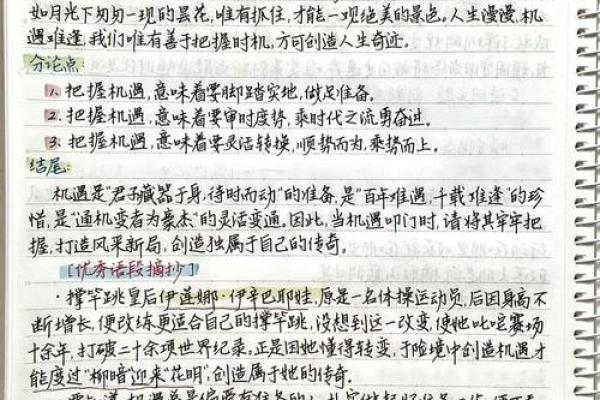 如月光下匆匆一现的昙花，唯有抓住，才能一现绝美的景色。人生漫漫，机
遇难逢，我们唯有善于把握时机，方可创造人生奇迹。
分论点：
1. 把握机遇，意味着要脚踏实地，做足准备。
2. 把握机遇，意味着要审时度势，乘时代之流勇奋进。
3. 把握机遇，意味着要灵活转换，顺势而为，乘势而上。
结尾：
机遇是“君子藏器于身，待时而动”的准备，是“百年难遇，千载难逢”的珍
惜，是“通机变者为豪杰”的灵活变通。因此，当机遇叩门时，请将其牢牢把
握，打造风采新局，创造独属于自己的传奇。
[优秀语段摘抄]
·撑竿跳皇后伊莲娜·伊辛巴耶娃，原是一名体操运动员，后因身高不
断增长，便改练更适合自己的撑竿跳，没想到这一改变，使她叱咤赛场
十余年，打破二十余项世界纪录。正是因她懂得转变，于险境中创造机遇，才
能度过“柳暗”迎来“花明”，创造属于她的传奇。